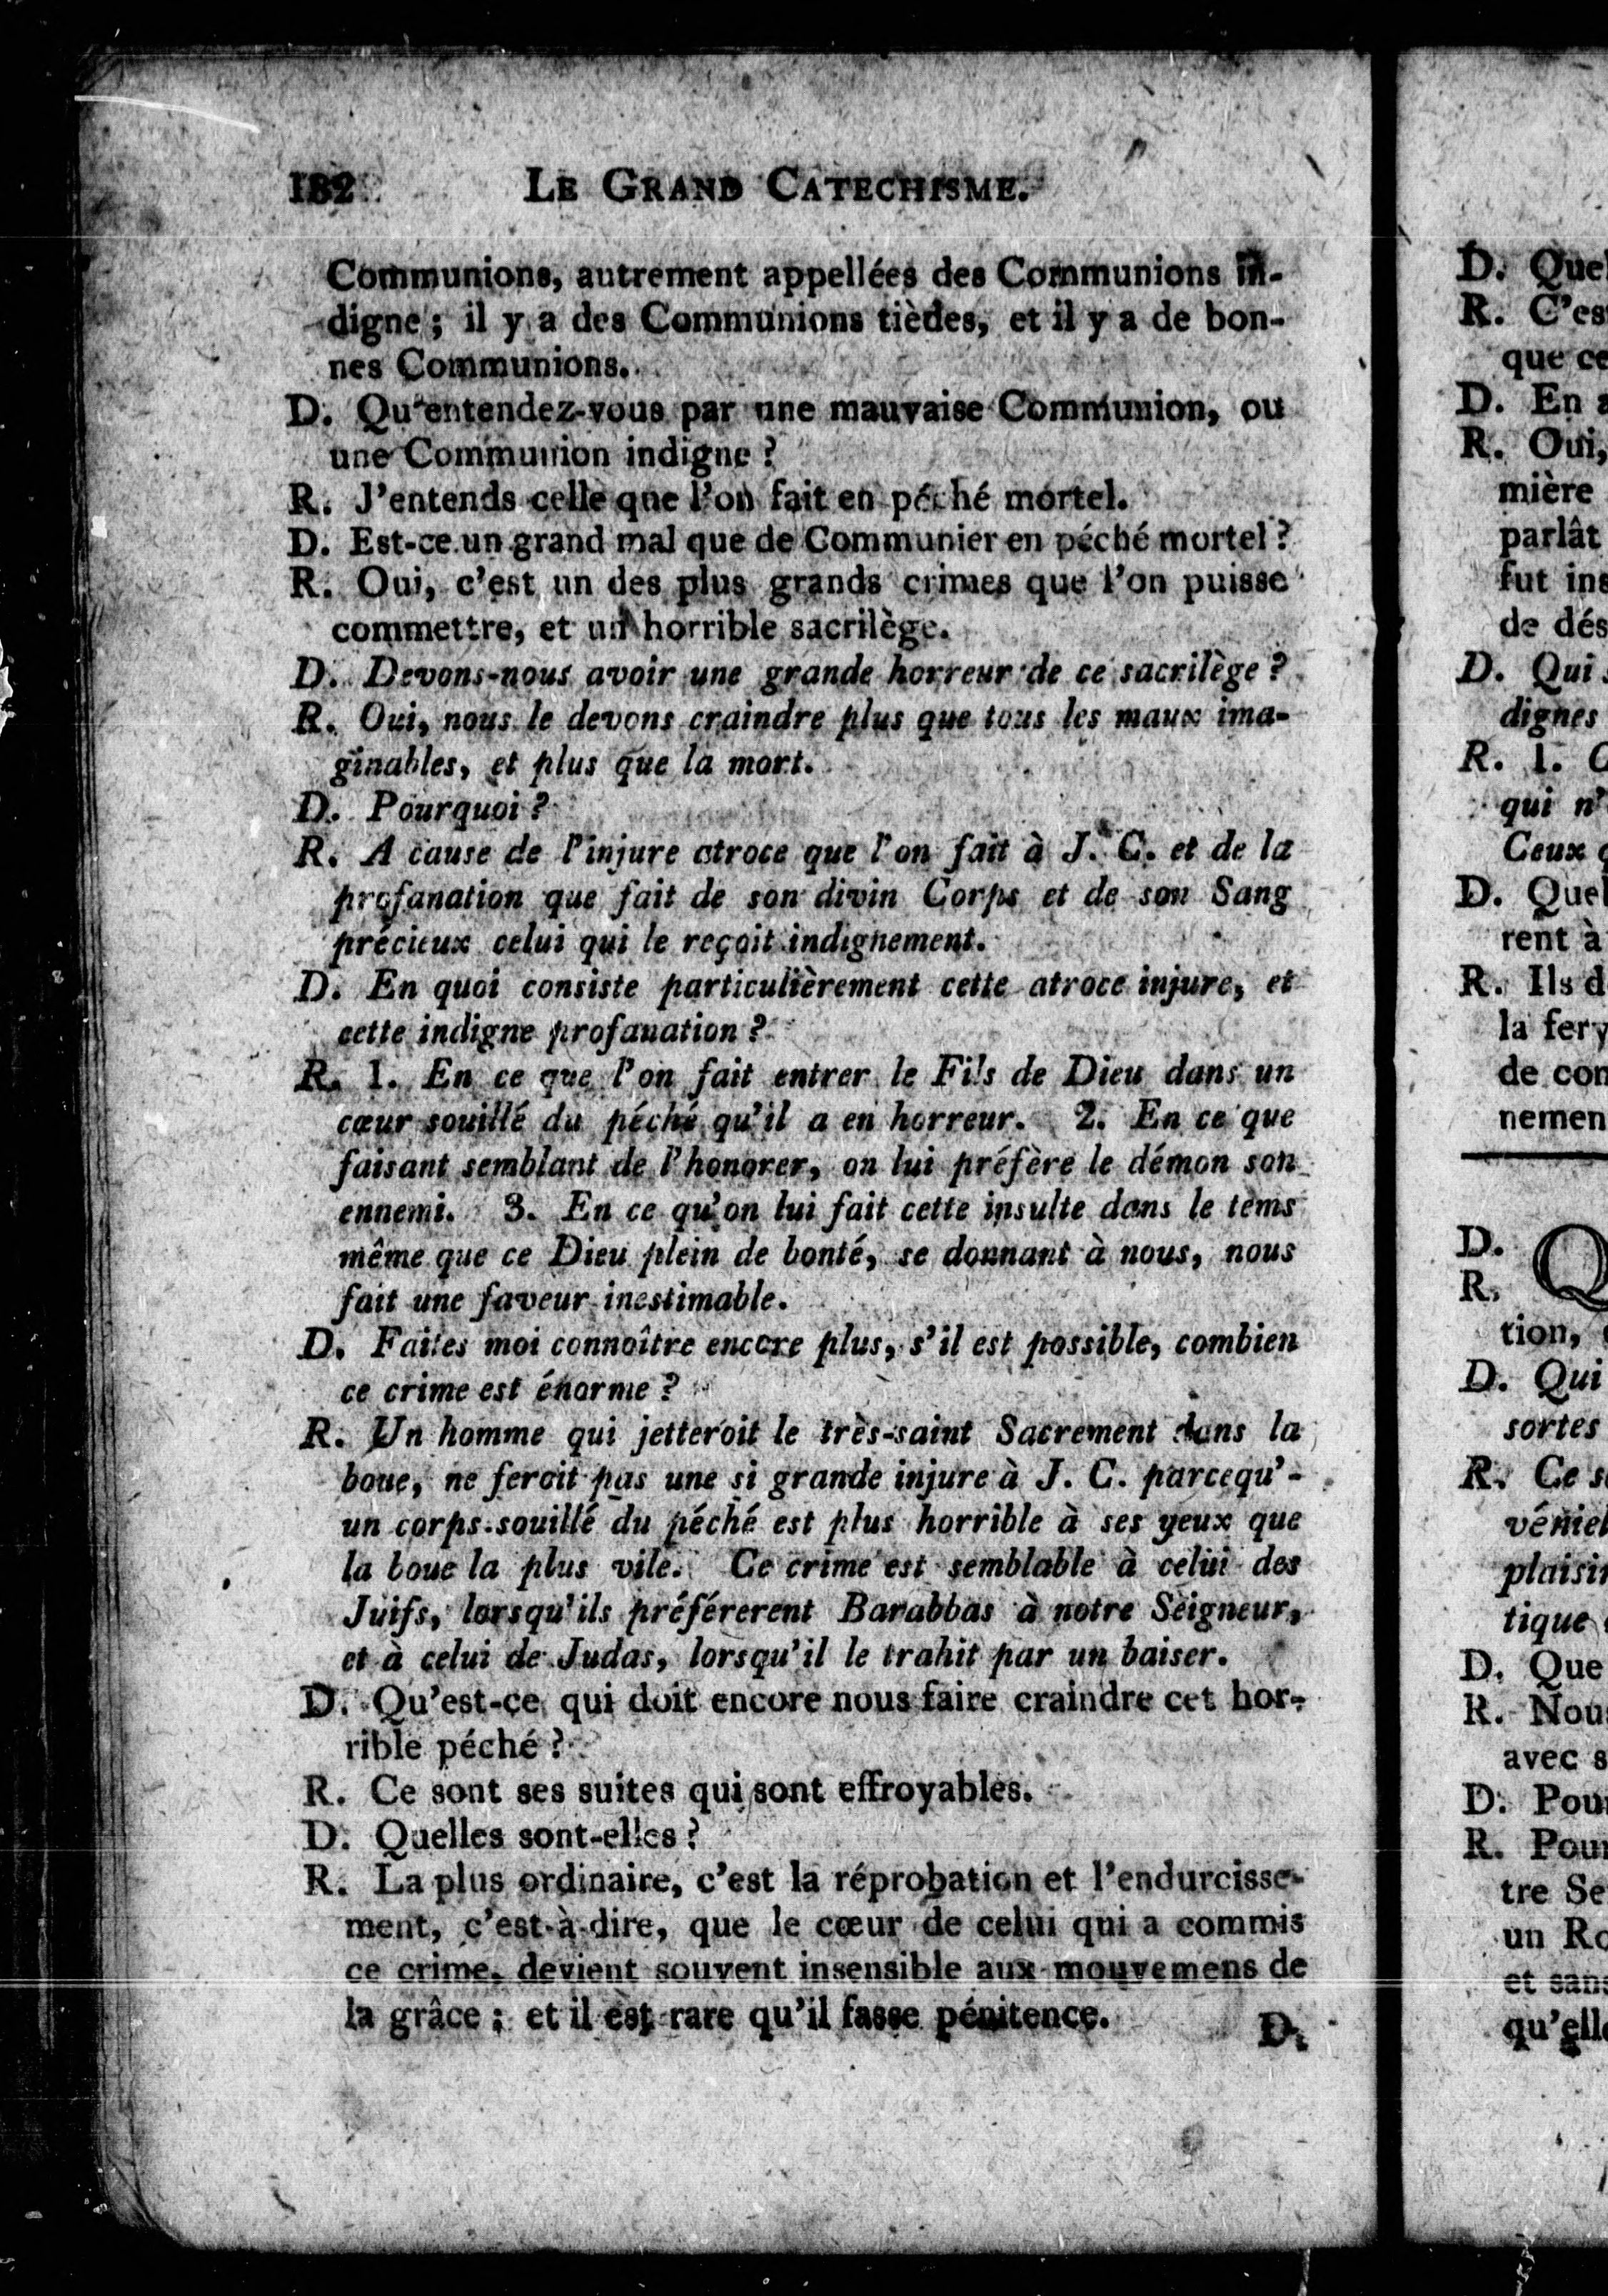 182 LE GRAND CATECHISME.
Communions, autrement appellées des Communions in-
digne; il y a des Communions tièdes, et il y a de bon-
nes Communions.
D. Qu'entendez-vous par une mauvaise Communion, ou
une Communion indigne ?
R. J'entends celle que l'on fait en péché mortel.
D. Est-ce un grand mal que de Communier en péché mortel ?
R. Oui, c'est un des plus grands crimes que l'on puisse
commettre, et un horrible sacrilège.
D. Devons-nous avoir une grande horreur de ce sacrilège ?
R. Oui, nous le devons craindre plus que tous les maux ima-
ginables, et plus que la mort.
D. Pourquoi ?
R. A cause de l'injure atroce que l'on fait à J. C. et de la
profanation que fait de son divin Corps et de son Sang
précieux celui qui le reçoit indignement.
D. En quoi consiste particulièrement cette atroce injure, et
cette indigne profanation ?
R. 1. En ce que l'on fait entrer le Fils de Dieu dans un
cœur souillé du péché qu'il a en horreur. 2. En ce que
faisant semblant de l'honorer, on lui préfère le démon son
ennemi. 3. En ce qu'on lui fait cette insulte dans le tems
même que ce Dieu plein de bonté, se donnant à nous, nous
fait une faveur inestimable.
D. Faites moi connoître encore plus, s'il est possible, combien
ce crime est énorme ?
R. Un homme qui jetteroit le très-saint Sacrement dans la
boue, ne feroit pas une si grande injure à J. C. parcequ'-
un corps souillé du péché est plus horrible à ses yeux que
la boue la plus vile. Ce crime est semblable à celui des
Juifs, lorsqu'ils préférerent Barabbas à notre Seigneur,
et à celui de Judas, lorsqu'il le trahit par un baiser.
D. Qu'est-ce qui doit encore nous faire craindre cet hor-
rible péché ?
R. Ce sont ses suites qui sont effroyables.
D. Quelles sont-elles ?
R. La plus ordinaire, c'est la réprobation et l'endurcisse-
ment, c'est-à-dire, que le cœur de celui qui a commis
ce crime, devient souvent insensible aux mouvemens de
la grâce ; et il est rare qu'il fasse pénitence.
D.
D. Quel
R. C'es
que ce
D. En a
R. Oui,
mière
parlât
fut ins
de dés
D. Qui s
dignes
R. 1. C
qui n'
Ceux q
D. Quel
rent à
R. Ils d
la ferv
de con
nemen
D. Q
R.
tion,
D. Qui
sortes
R. Ce s
véniel
plaisir
tique
D. Que
R. Nous
avec s
D. Pour
R. Pour
tre Se
un Ro
et sans
qu'elle